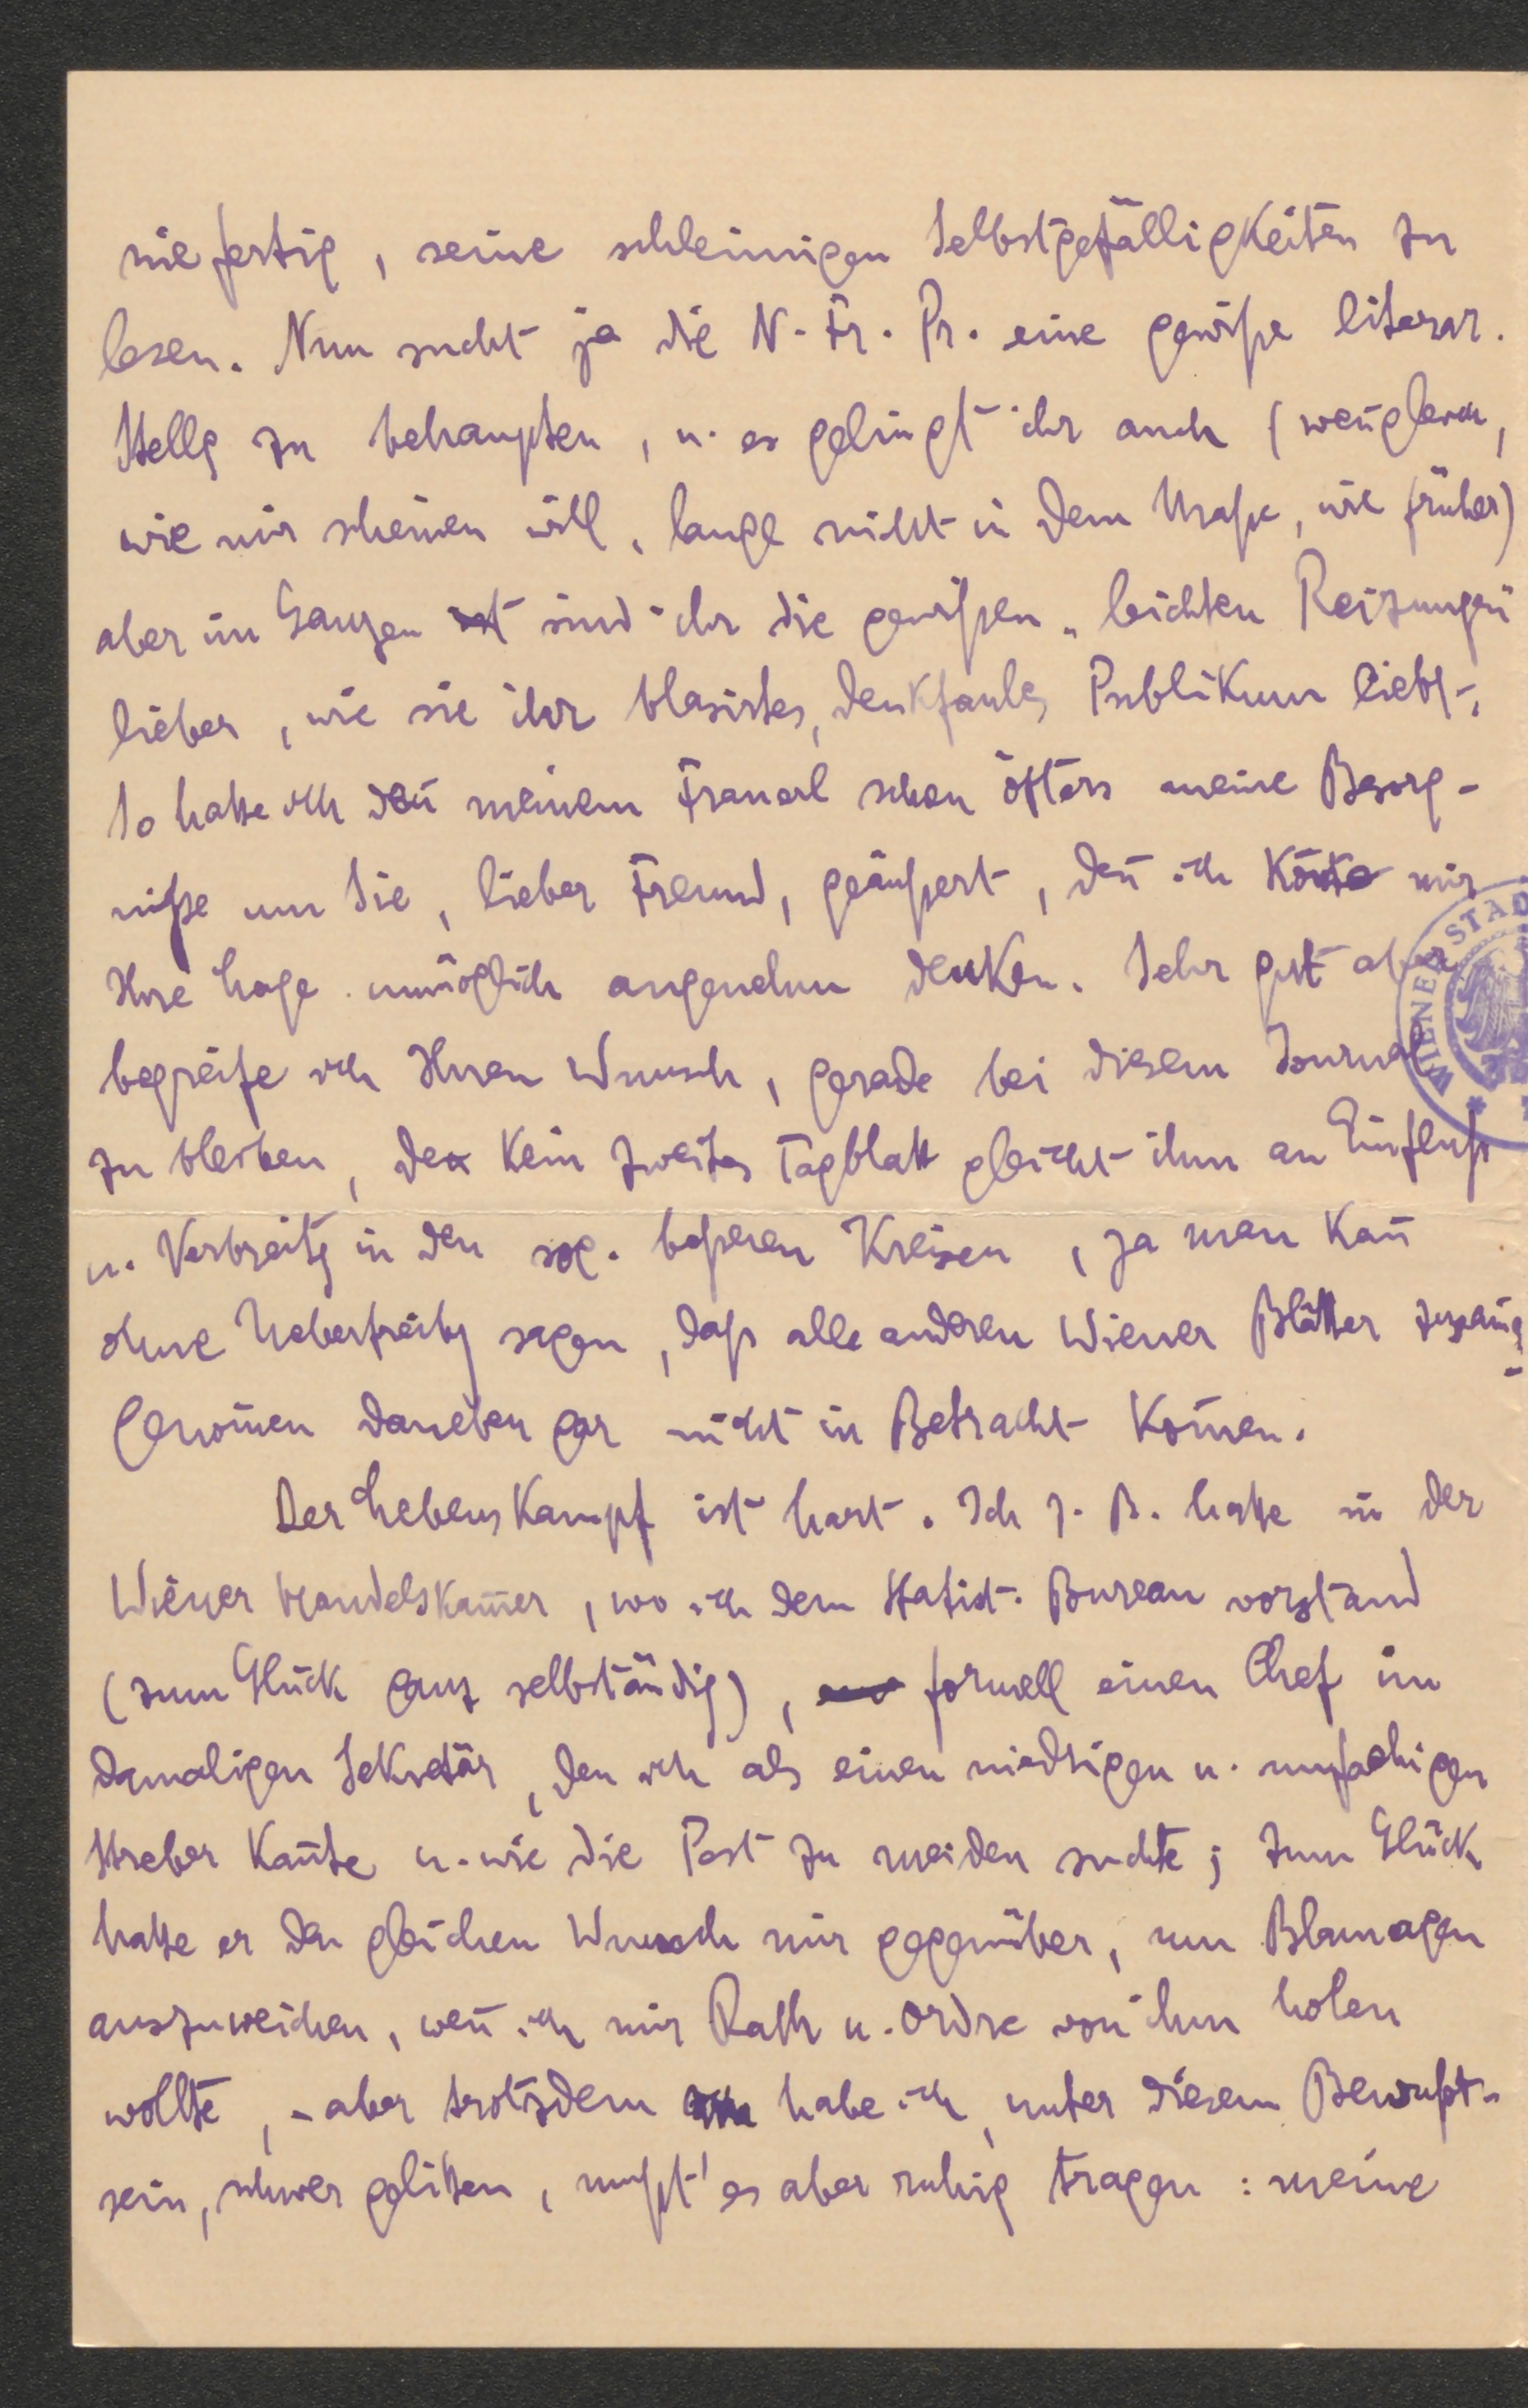 nie fertig, seine schleimigen Selbstgefälligkeiten zu
lesen. Nun sucht ja die N. Fr. Pr. eine gewiße literar.
Stellg zu behaupten, u. es gelingt ihr auch (weñgleich,
wie mir scheinen will, lange nicht in dem Maße, wie früher)
aber im Ganzen sind ihr die gewißen „leichten Reizungen“
lieber, wie sie ihr blasirtes, denkfaules Publikum liebt.
So hatte ich deñ meinem Frauerl schon öfters meine Besorg-
niße um Sie, lieber Freund, geäußert, deñ ich koñte mir
Ihre Lage unmöglich angenehm denken. Sehr gut aber
begreife ich Ihren Wunsch, gerade bei diesem Journal
zu bleiben, den kein zweites Tagblatt gleicht ihm an Einfluß
u. Verbreitg in den sog. beßeren Kreisen, ja man kañ
ohne Uebertreibg sagen, daß alle anderen Wiener Blätter zusam̄-
genom̄en daneben gar nicht in Betracht kom̄en.
Der Lebenskampf ist hart. Ich z. B. hatte in der
Wiener Handelskam̄er, wo ich dem statist. Bureau vorstand
(zum Glück ganz selbständig), formell einen Chef im
damaligen Sekretär, den ich als einen niedrigen u. unfaehigen
Streber kañte u. wie die Pest zu meiden suchte; zum Glück
hatte er den gleichen Wunsch mir gegenüber, um Blamagen
auszuweichen, weñ ich mir Rath u. Ordre von ihm holen
wollte, – aber trotzdem habe ich, unter diesem Bewußt-
sein, schwer gelitten, mußt' es aber ruhig tragen: meine
WIENER STAD